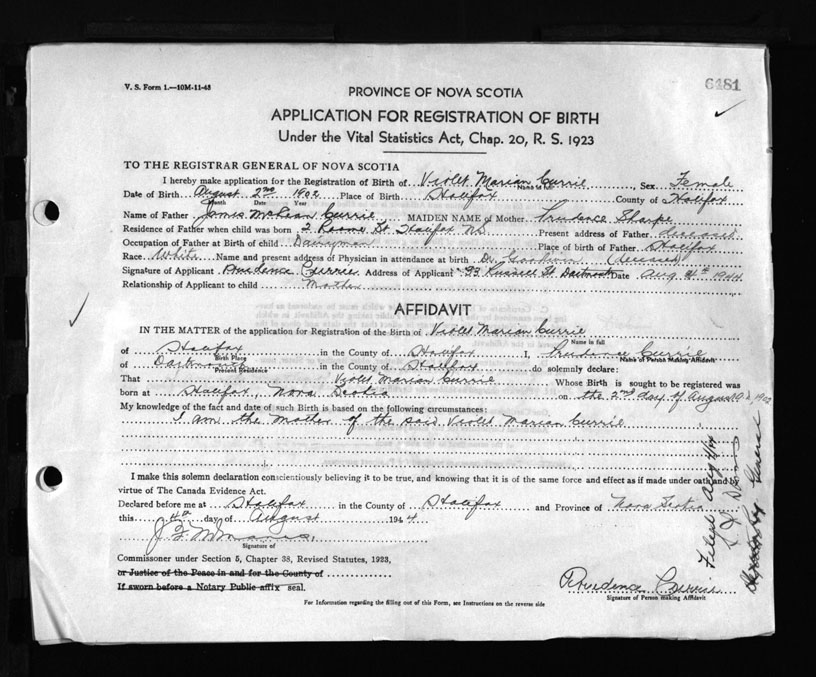 V. S. Form 1.—10M-11-43
6481
PROVINCE OF NOVA SCOTIA
APPLICATION FOR REGISTRATION OF BIRTH
Under the Vital Statistics Act, Chap. 20, R. S. 1923
TO THE REGISTRAR GENERAL OF NOVA SCOTIA
I hereby make application for the Registration of Birth of Violet Marian Currie, Sex Female
Name in full
Date of Birth August 2nd 1902 Place of Birth Halifax County of Halifax
Month Date Year
Name of Father James McLean Currie, MAIDEN NAME of Mother Prudence Sharpe
Residence of Father when child was born Roome St Halifax N.S. Present address of Father deceased
Occupation of Father at Birth of child Dairyman Place of Birth of Father Halifax
Race White Name and present address of Physician in attendance at birth Dr. Goodwin (deceased)
Signature of Applicant Prudence Currie Address of Applicant 99 Russell St Dartmouth Date Aug 4th 1944
Relationship of Applicant to child Mother
AFFIDAVIT
IN THE MATTER of the application for Registration of the Birth of Violet Marian Currie
Name in full
of Halifax in the County of Halifax I, Prudence Currie
Birth Place Name of Person Making Affidavit
of Dartmouth in the County of Halifax do solemnly declare:
Present Residence
That Violet Marian Currie Whose Birth is sought to be registered was
born at Halifax, Nova Scotia on the 2nd day of August A.D. 1902
My knowledge of the fact and date of such Birth is based on the following circumstances:
I am the Mother of the said Violet Marian Currie
I make this solemn declaration conscientiously believing it to be true, and knowing that it is of the same force and effect as if made under oath and by
virtue of The Canada Evidence Act.
Declared before me at Halifax in the County of Halifax and Province of Nova Scotia
this 4th day of August 1944
Signature of
Commissioner under Section 5, Chapter 38, Revised Statutes, 1923,
or Justice of the Peace in and for the County of
If sworn before a Notary Public affix seal.
Prudence Currie
Signature of Person making Affidavit
For Information regarding the filling out of this Form, see Instructions on the reverse side
Filed Aug 4/44
Registrar General